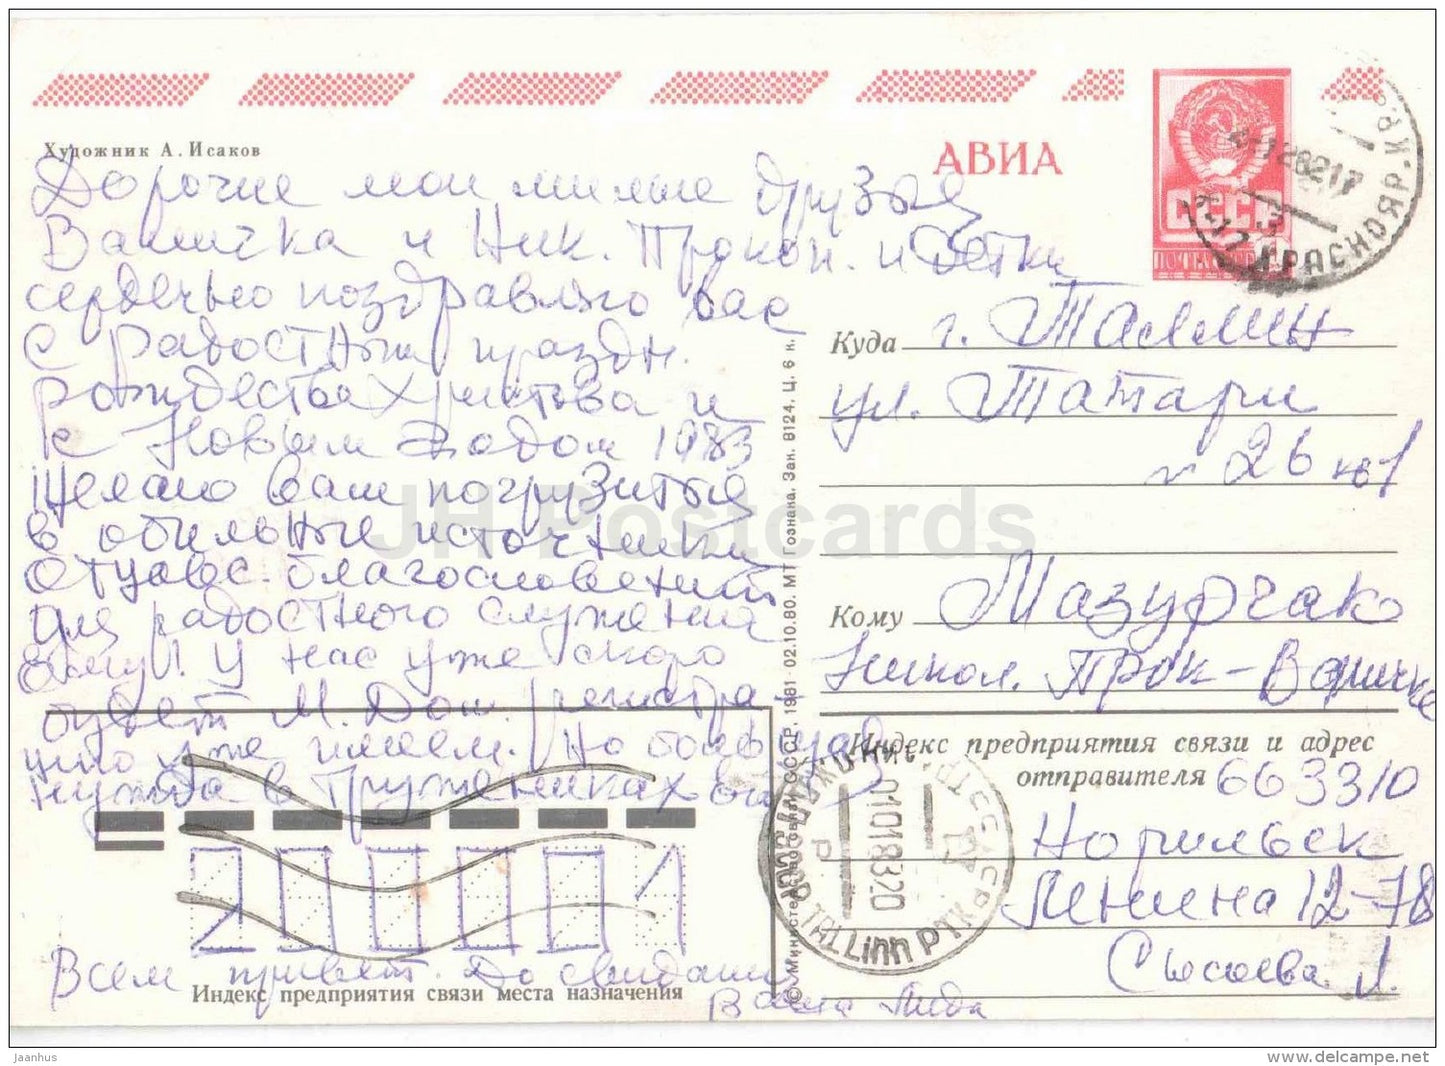 АВИА
Художник А. Исаков
Дорогие мои милые друзья
Валичка и Ник. Прокоп. и детки
сердечно поздравляю вас
с радостным праздн.
Рождества Христова и
с Новым Годом 1983
Желаю вам погрузиться
в обильные источники
Отцовс. благословений
для радостного служения
Ему! У нас уже скоро
будет М. Дом. регистра
цию уже имеем. Но большая
нужда в тружениках
Всем привет. До свидания
Ваша Лида
Индекс предприятия связи места назначения
200001
© Министерство связи СССР, 1981 02.10.80. МТ Гознака. Зак. 8124. Ц. 6 к.
СССР
КРАСНОЯР.
Куда г. Таллин
ул. Татари
26 кв 1
Кому Мазурчак
Никол. Прок - Валичке
Индекс предприятия связи и адрес
отправителя 663310
Норильск
Ленина 12-78
Сысоева Л.
010183 20
TALLinn PTK
JH Postcards
jaanhus
www.delcampe.net